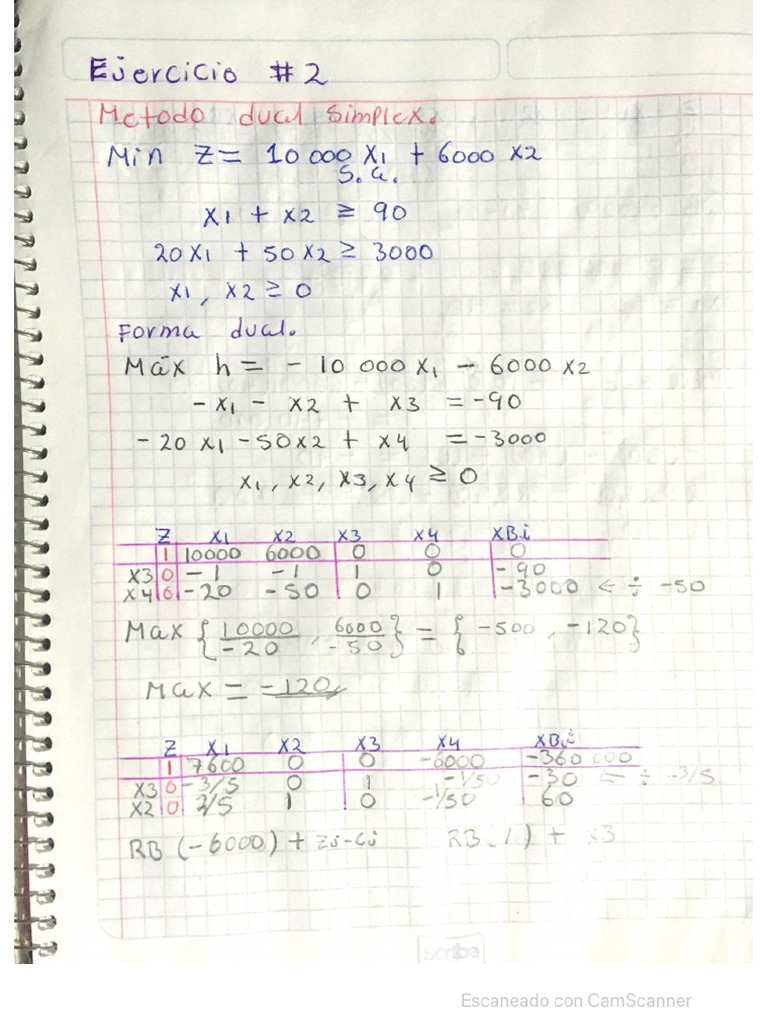 Ejercicio #2
Metodo dual simplex.
Min Z = 10 000 X1 + 6000 X2
S.a.
X1 + X2 ≥ 90
20X1 + 50X2 ≥ 3000
X1, X2 ≥ 0
Forma dual.
Máx h = - 10 000 X1 - 6000 X2
-X1 - X2 + X3 = -90
-20X1 - 50X2 + X4 = -3000
X1, X2, X3, X4 ≥ 0
Z X1 X2 X3 X4 XBi
1 10000 6000 0 0 0
X3 0 -1 -1 1 0 -90
X4 0 -20 -50 0 1 -3000 ← ÷ -50
Max { 10000/-20 , 6000/-50 } = { -500 , -120 }
Max = -120
Z X1 X2 X3 X4 XBi
1 7600 0 0 -6000 -360 000
X3 0 -3/5 0 1 -1/50 -30 ← ÷ -3/5
X2 0 2/5 1 0 -1/50 60
RB (-6000) + Zj-Cj RB 1) + X3
Scribe
Escaneado con CamScanner